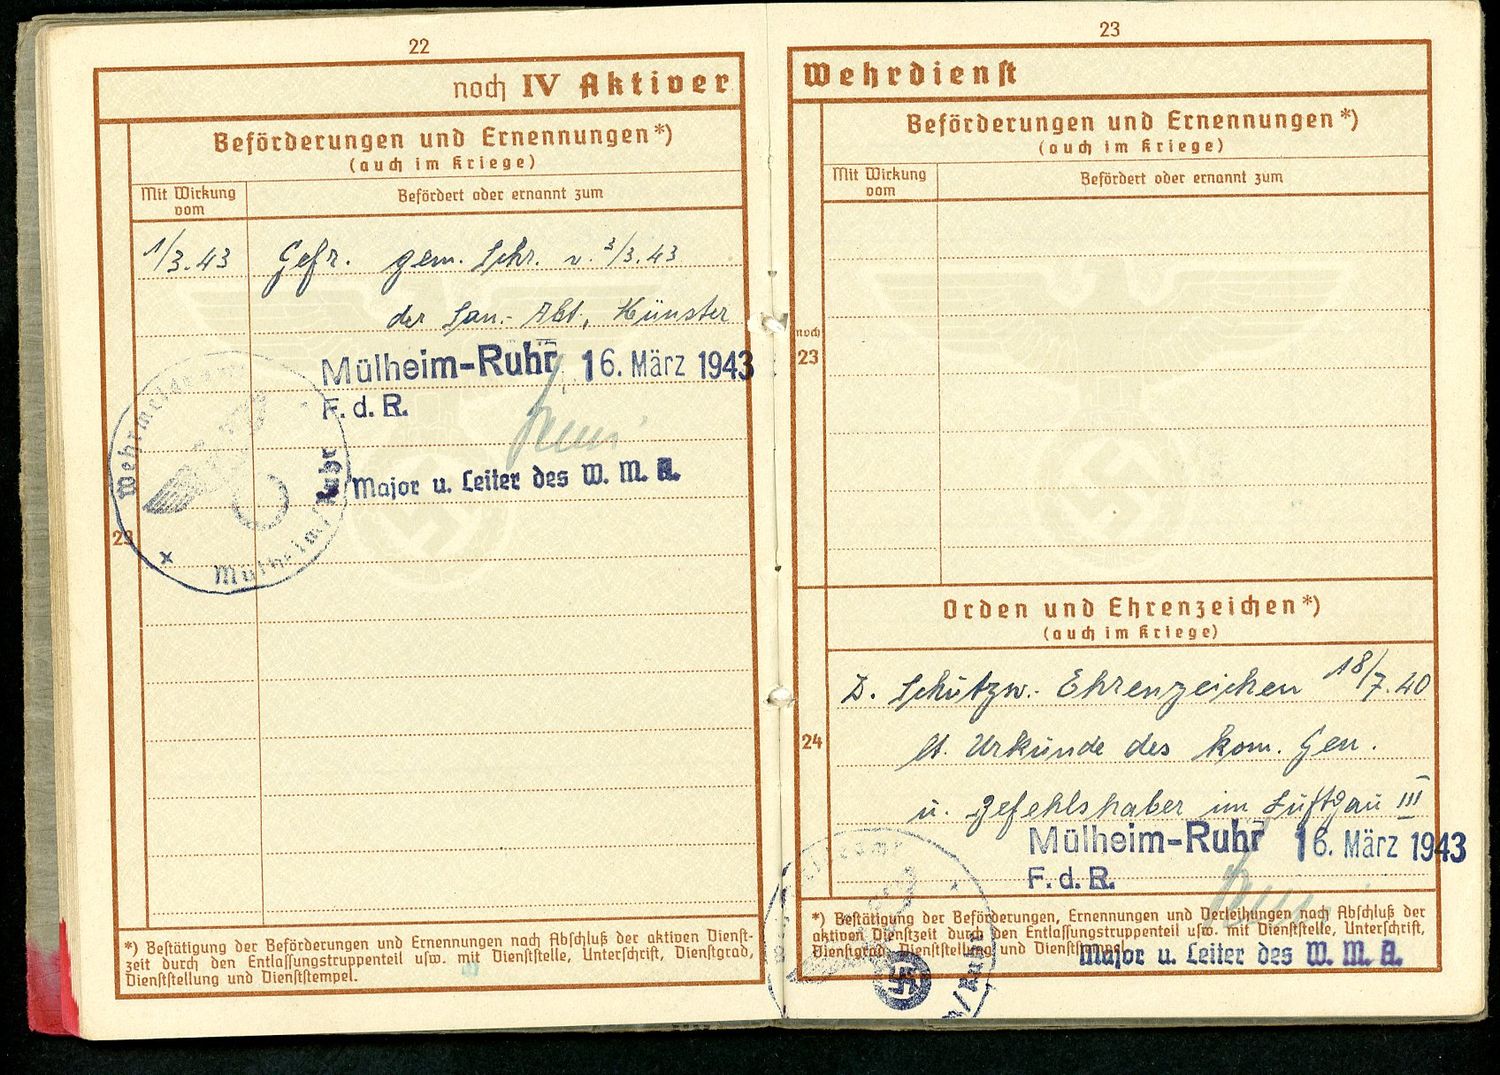 22
noch IV Aktiver
Beförderungen und Ernennungen*)
(auch im Kriege)
Mit Wirkung vom
Befördert oder ernannt zum
1/3.43 Gefr. gem. Schr. v. 3/3.43
der San.- Abt., Münster
Mülheim-Ruhr 16. März 1943
F. d. R.
Major u. Leiter des W. M. A.
Wehrmeldeamt
Mülheim/Ruhr
23
*) Bestätigung der Beförderungen und Ernennungen nach Abschluß der aktiven Dienst-
zeit durch den Entlassungstruppenteil usw. mit Dienststelle, Unterschrift, Dienstgrad,
Dienststellung und Dienststempel.
23
Wehrdienst
Beförderungen und Ernennungen*)
(auch im Kriege)
Mit Wirkung vom
Befördert oder ernannt zum
noch
23
Orden und Ehrenzeichen*)
(auch im Kriege)
24
D. Schutzw.- Ehrenzeichen 18/7.40
lt. Urkunde des kom. Gen.
u. Befehlshaber im Luftgau III
Mülheim-Ruhr 16. März 1943
F. d. R.
*) Bestätigung der Beförderungen, Ernennungen und Verleihungen nach Abschluß der
aktiven Dienstzeit durch den Entlassungstruppenteil usw. mit Dienststelle, Unterschrift,
Dienstgrad, Dienststellung und Dienststempel.
Major u. Leiter des W. M. A.
/Ruhr